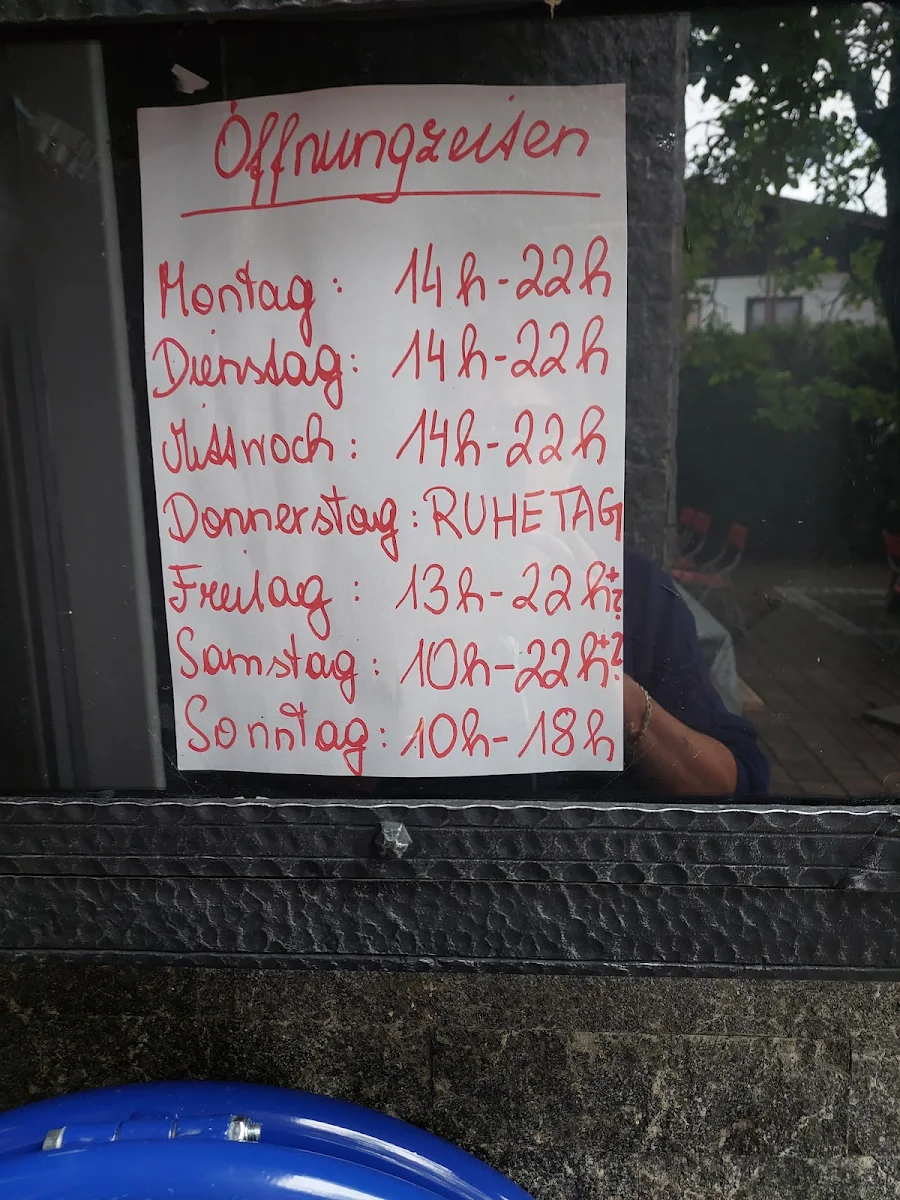 Öffnungzeiten
Montag: 14h-22h
Dienstag: 14h-22h
Mittwoch: 14h-22h
Donnerstag: RUHETAG
Freitag: 13h-22h+?
Samstag: 10h-22h+?
Sonntag: 10h-18h